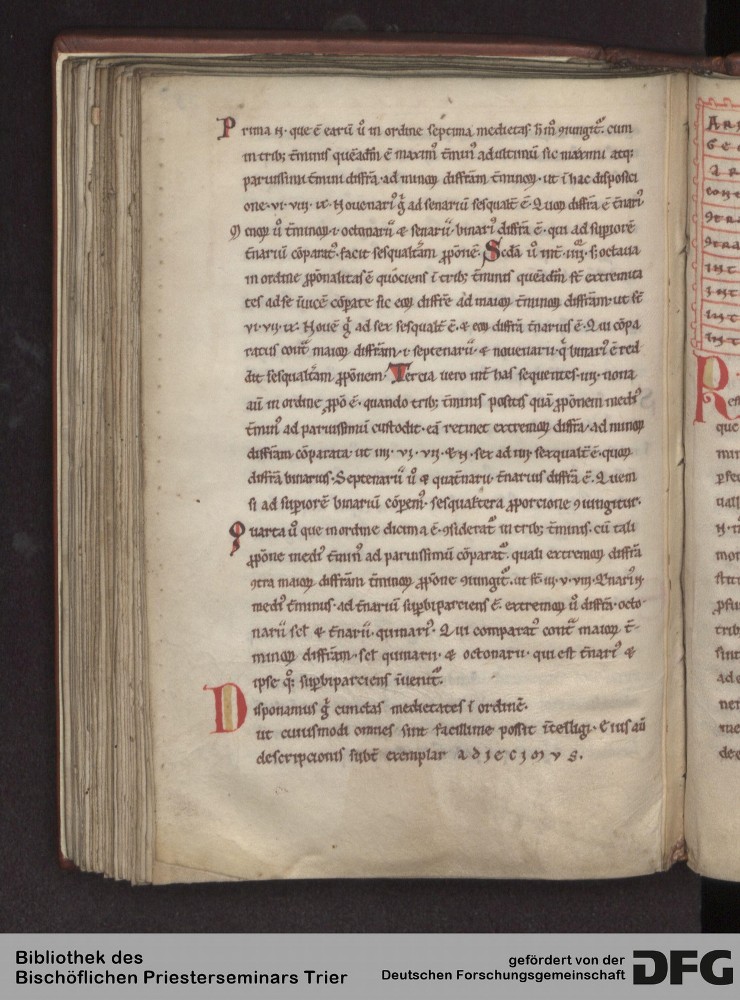 Prima .n. que ē earū ů in ordine septima medietas h̄ m̊ ɔiungit᷑. cum
in trib; t̄minis quēadm̄ ē maxim᷒ t̄min᷒ ad ultimū sic maximi atq;
paruissimi t̄mini diffr̄a. ad minoꝝ diffr̄am t̄minoꝝ. ut i hac disposici
one. vi. viii. ix. Nouenari᷒ g̊ ad senariū sesqualt̄ ē. Quoꝝ diffr̄a ē t̄nari᷒.
t̄minoꝝ. i. octonarii & senarii. binari᷒ diffr̄a ē. qui ad supiorē
t̄nariū cōparat᷒. facit sesqualt̄am ꝓpōnē. Scd̄a ů int̄ .iiii. s; octaua
in ordine ꝓpōnalitas ē quociens i trib; t̄minis quēadm̄ st̄ extremita
tes ad se īuicē cōpate sic eoꝝ diffr̄e ad maioꝝ t̄minoꝝ diffr̄am. ut st̄
vi. vii. ix. Nouē g̊ ad sex sesqualt̄ ē. & eoꝝ diffr̄a t̄narius ē. Qui cōpa
ratus cont᷑ maioꝝ diffr̄am. i. septenarii. & nouenarii. q̊ binari᷒ ē red
dit sesqualt̄am ꝓpōnem. Tercia uero int̄ has sequentes .iiii. nona
aū in ordine ꝓpo ē. quando trib; t̄minis positis quā ꝓpōnem medi᷒
t̄min᷒ ad paruissimū custodit. eā retinet extremoꝝ diffr̄a. ad minoꝝ
diffr̄am cōparata. ut iiii. vi. vii. &.n. sex ad iiii sexqualt̄ ē. quoꝝ
diffr̄a binarius. Septenarii ů & quat̄narii. t̄narius diffr̄a ē. Quem
si ad supiorē binariū cōpem᷒. sesqualtera ꝓporcione ɔiungitur.
Quarta ů que in ordine dicima ē. ɔsiderat᷑ in trib; t̄minis. cū tali
ꝓpōne medi᷒ t̄min᷒ ad paruissimū cōparat᷑. quali extremoꝝ diffr̄a
ɔtra maioꝝ diffr̄am t̄minoꝝ ꝓpone ɔiungit᷑. ut st̄ iii. v. viii. Q̇nari᷒ .n.
medi᷒ t̄minus. ad t̄nariū supbiparciens ē. extremoꝝ ů diffr̄a. octo
narii sc̄l & t̄narii. quinari᷒. Qui comparat᷒ cont᷑ maioꝝ t̄-
minoꝝ diffr̄am. sc̄l quinarii. & octonarii. qui est t̄nari᷒ &
ipse q̊;. supbiparciens īuenit᷑.
Disponamus g̊ cunctas medietates i ordinē.
ut cuiusmodi omnes sint facillime possit ītelligi. Eius aū
descripcionis subt̄ exemplar adiecimus.
Bibliothek des
Bischöflichen Priesterseminars Trier
gefördert von der
Deutschen Forschungsgemeinschaft
DFG